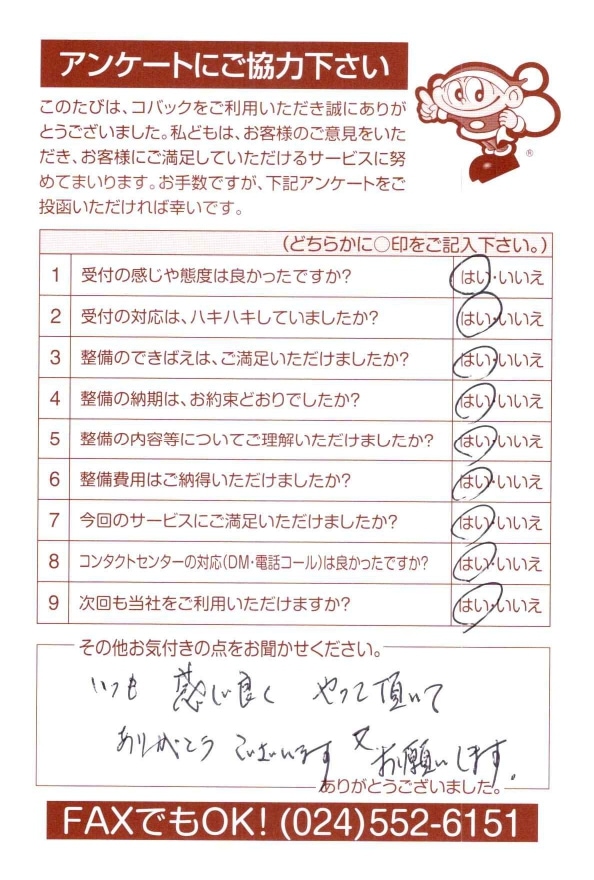 アンケートにご協力下さい
このたびは、コバックをご利用いただき誠にありが
とうございました。私どもは、お客様のご意見をいた
だき、お客様にご満足していただけるサービスに努
めてまいります。お手数ですが、下記アンケートをご
投函いただければ幸いです。
®
(どちらかに○印をご記入下さい。)
1 受付の感じや態度は良かったですか? はい・いいえ
2 受付の対応は、ハキハキしていましたか? はい・いいえ
3 整備のできばえは、ご満足いただけましたか? はい・いいえ
4 整備の納期は、お約束どおりでしたか? はい・いいえ
5 整備の内容等についてご理解いただけましたか? はい・いいえ
6 整備費用はご納得いただけましたか? はい・いいえ
7 今回のサービスにご満足いただけましたか? はい・いいえ
8 コンタクトセンターの対応(DM・電話コール)は良かったですか? はい・いいえ
9 次回も当社をご利用いただけますか? はい・いいえ
その他お気付きの点をお聞かせください。
いつも 感じ良く やって頂いて
ありがとう ございます 又 お願いします。
ありがとうございました。
FAXでもOK! (024)552-6151